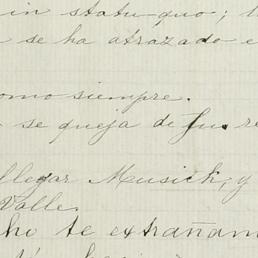 in statu-quo;
se ha atrazado
como siempre.
se queja de su
llegar Musick, y
Valle.
te extrañam